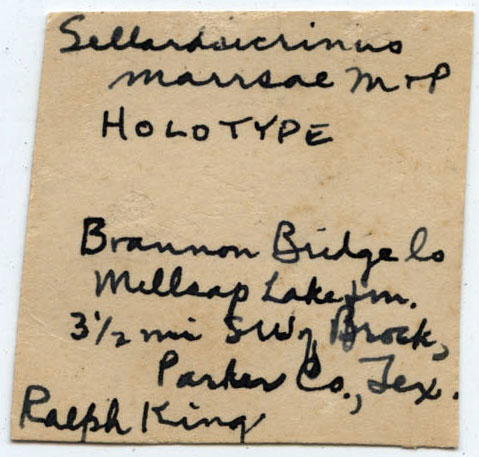 Sellardsicrinus
marrsae M+P
HOLOTYPE
Brannon Bridge ls
Millsap Lake fm.
3 1/2 mi SW of Brock,
Parker Co., Tex.
Ralph King